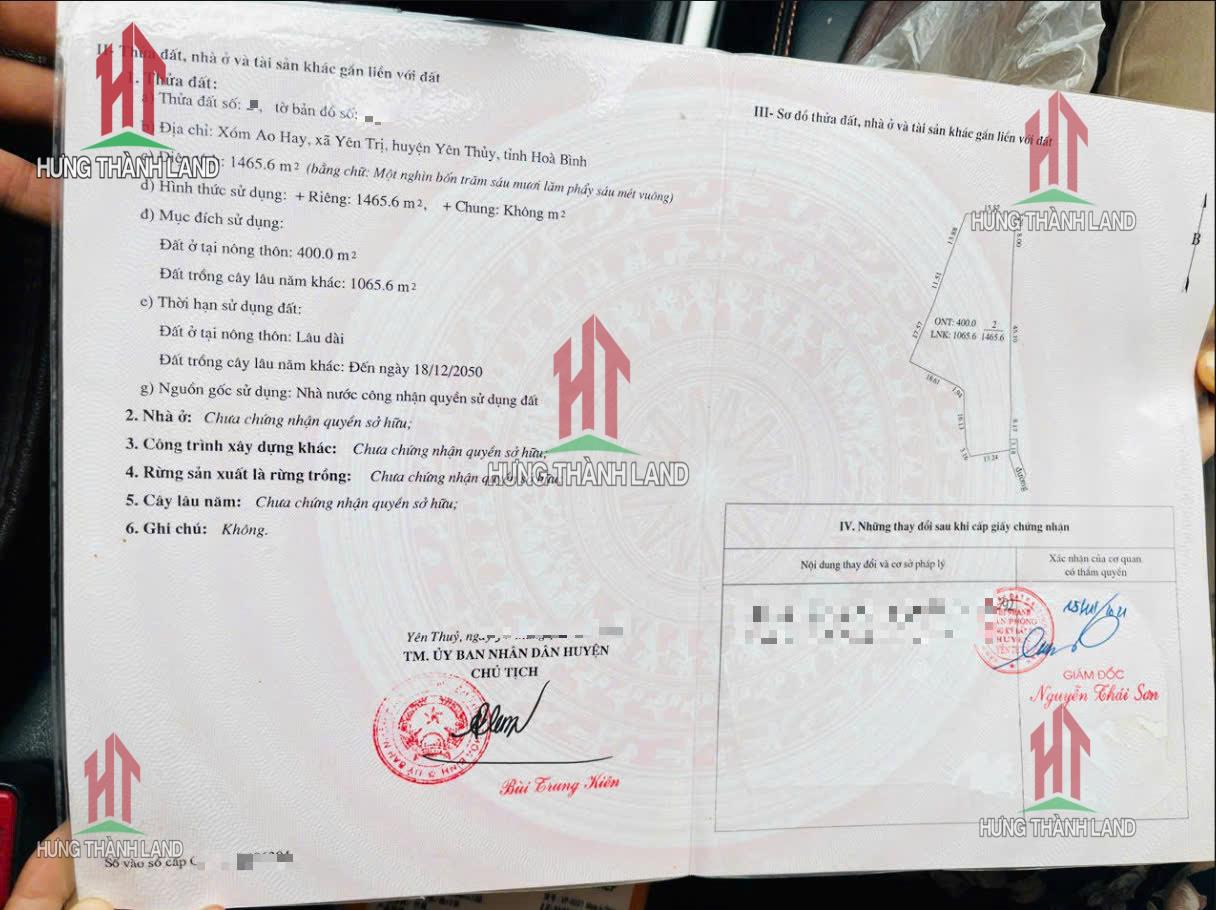 II- Thửa đất, nhà ở và tài sản khác gắn liền với đất
1. Thửa đất:
a) Thửa đất số: , tờ bản đồ số:
b) Địa chỉ: Xóm Ao Hay, xã Yên Trị, huyện Yên Thủy, tỉnh Hoà Bình
1465.6 m² (bằng chữ: Một nghìn bốn trăm sáu mươi lăm phẩy sáu mét vuông)
d) Hình thức sử dụng: + Riêng: 1465.6 m², + Chung: Không m²
đ) Mục đích sử dụng:
Đất ở tại nông thôn: 400.0 m²
Đất trồng cây lâu năm khác: 1065.6 m²
e) Thời hạn sử dụng đất:
Đất ở tại nông thôn: Lâu dài
Đất trồng cây lâu năm khác: Đến ngày 18/12/2050
g) Nguồn gốc sử dụng: Nhà nước công nhận quyền sử dụng đất
2. Nhà ở: Chưa chứng nhận quyền sở hữu;
3. Công trình xây dựng khác: Chưa chứng nhận quyền sở hữu;
4. Rừng sản xuất là rừng trồng: Chưa chứng nhận quyền sở hữu
5. Cây lâu năm: Chưa chứng nhận quyền sở hữu;
6. Ghi chú: Không.
Yên Thuỷ,
TM. ỦY BAN NHÂN DÂN HUYỆN
CHỦ TỊCH
Bùi Trung Kiên
Số vào sổ cấp
III- Sơ đồ thửa đất, nhà ở và tài sản khác gắn liền với đất
B
13.88
8.00
11.51
17.57
ONT: 400.0
LNK: 1065.6
2
1465.6
18.61
1.94
10.13
3.56
13.24
đường
IV. Những thay đổi sau khi cấp giấy chứng nhận
Nội dung thay đổi và cơ sở pháp lý
Xác nhận của cơ quan
có thẩm quyền
GIÁM ĐỐC
Nguyễn Thái Sơn
HT
HƯNG THÀNH LAND
HT
HƯNG THÀNH LAND
HT
HƯNG THÀNH LAND
HT
HƯNG THÀNH LAND
HT
HƯNG THÀNH LAND